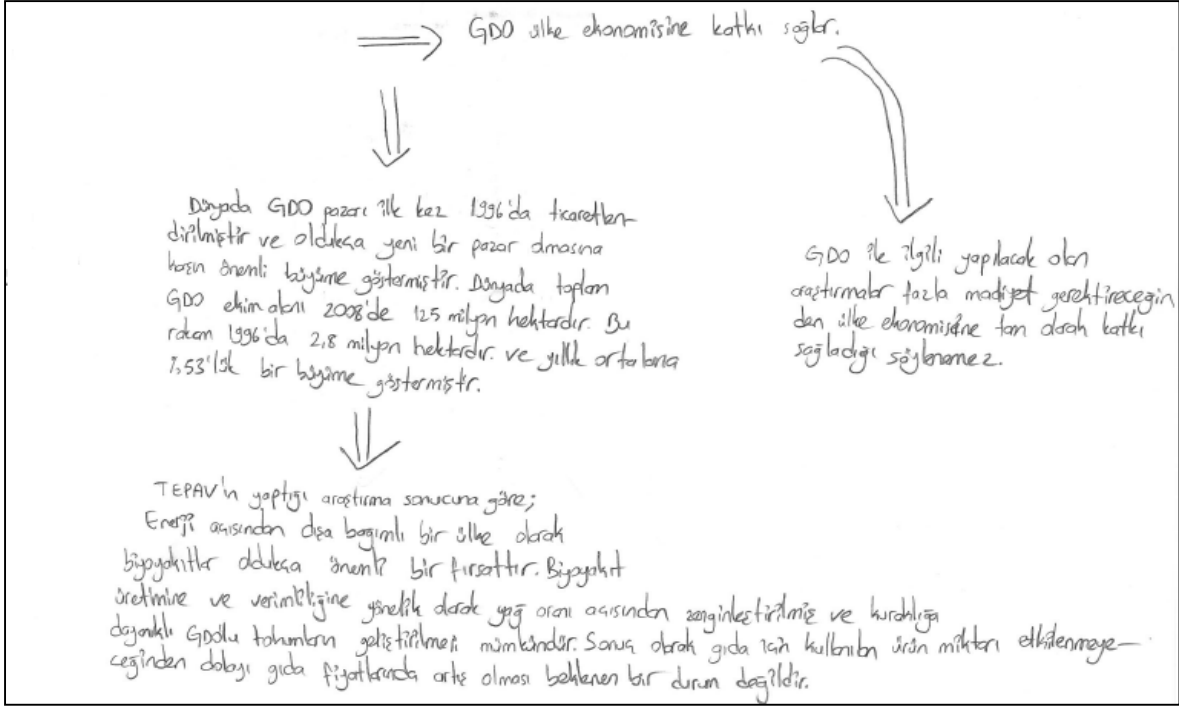 GDO ülke ekonomisine katkı sağlar.
Dünyada GDO pazarı ilk kez 1996'da ticaretlen-
dirilmiştir ve oldukça yeni bir pazar olmasına
karşın önemli büyüme göstermiştir. Dünyada toplam
GDO ekim alanı 2008'de 125 milyon hektardır. Bu
rakam 1996'da 2,8 milyon hektardır. ve yıllık ortalama
%53'lük bir büyüme göstermiştir.
GDO ile ilgili yapılacak olan
araştırmalar fazla maliyet gerektireceğin
den ülke ekonomisine tam olarak katkı
sağladığı söylenemez.
TEPAV'ın yaptığı araştırma sonucuna göre;
Enerji açısından dışa bağımlı bir ülke olarak
biyoyakıtlar oldukça önemli bir fırsattır. Biyoyakıt
üretimine ve verimliliğine yönelik olarak yağ oranı açısından zenginleştirilmiş ve kuraklığa
dayanıklı GDO'lu tohumların geliştirilmesi mümkündür. Sonuç olarak gıda için kullanılan ürün miktarı etkilenmeye-
ceğinden dolayı gıda fiyatlarında artış olması beklenen bir durum değildir.